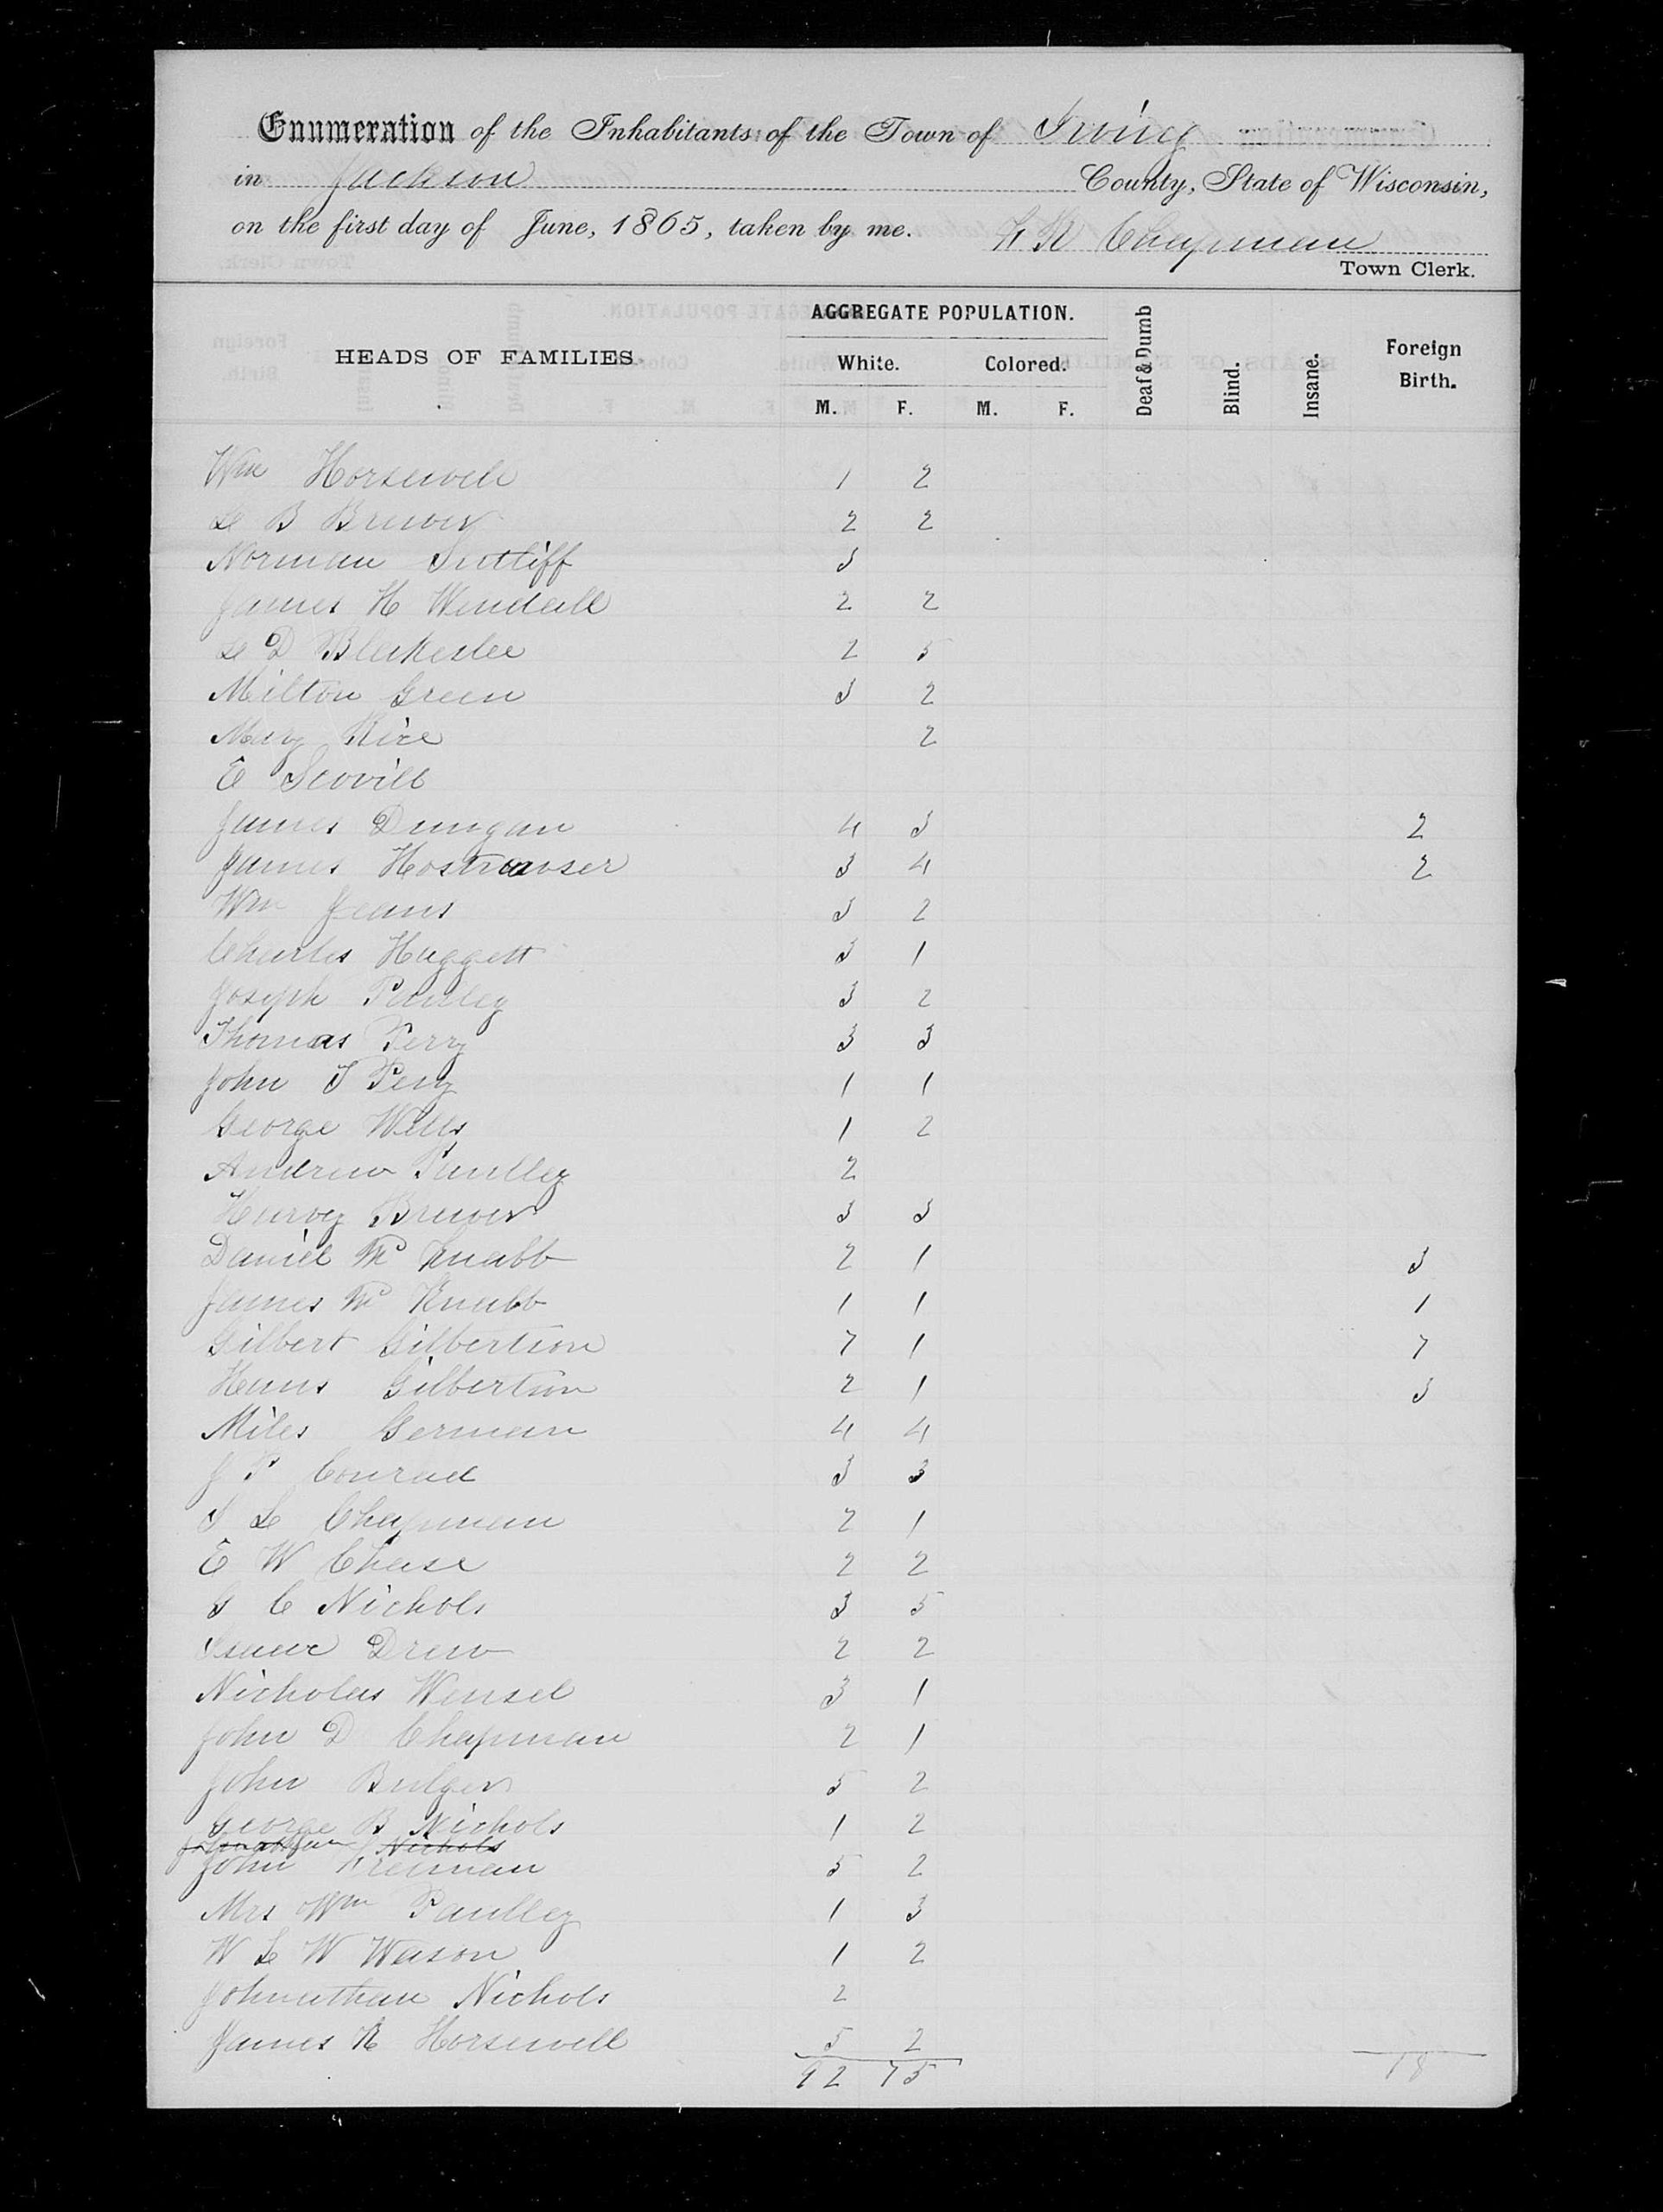 Enumeration of the Inhabitants of the Town of Irving
in Jackson County, State of Wisconsin,
on the first day of June, 1865, taken by me. Chapman
Town Clerk.
AGGREGATE POPULATION.
HEADS OF FAMILIES. White. Colored. Deaf & Dumb Blind. Insane. Foreign Birth.
M. F. M. F.
Wm Horsewell 1 2
L B Brewer 2 2
Norman Sutliff 3
James H Wendall 2 2
L D Blakeslee 2 5
Milton Green 3 2
Mary Rice 2
E Scovill
James Dungan 4 3 2
James Hostrawser 3 4 2
Wm Jeans 3 2
Charles Huggett 3 1
Joseph Paulley 3 2
Thomas Perry 3 3
John S Perry 1 1
George Wells 1 2
Andrew Paulley 2
Harvey Brewer 3 3
Daniel Mc Knabb 2 1 3
James Mc Knabb 1 1 1
Gilbert Gilbertson 7 1 7
Hans Gilbertson 2 1 3
Miles German 4 4
J P Conrad 3 3
S L Chapman 2 1
E W Chase 2 2
G C Nichols 3 5
Isaac Drew 2 2
Nicholas Wensel 3 1
John D Chapman 2 1
John Bulger 5 2
George B Nichols 1 2
Johnathan Nichols
John Freiman 5 2
Mrs Wm Paulley 1 3
W L W Wason 1 2
Johnathan Nichols 2
James R Horsewell 5 2
92 75 18